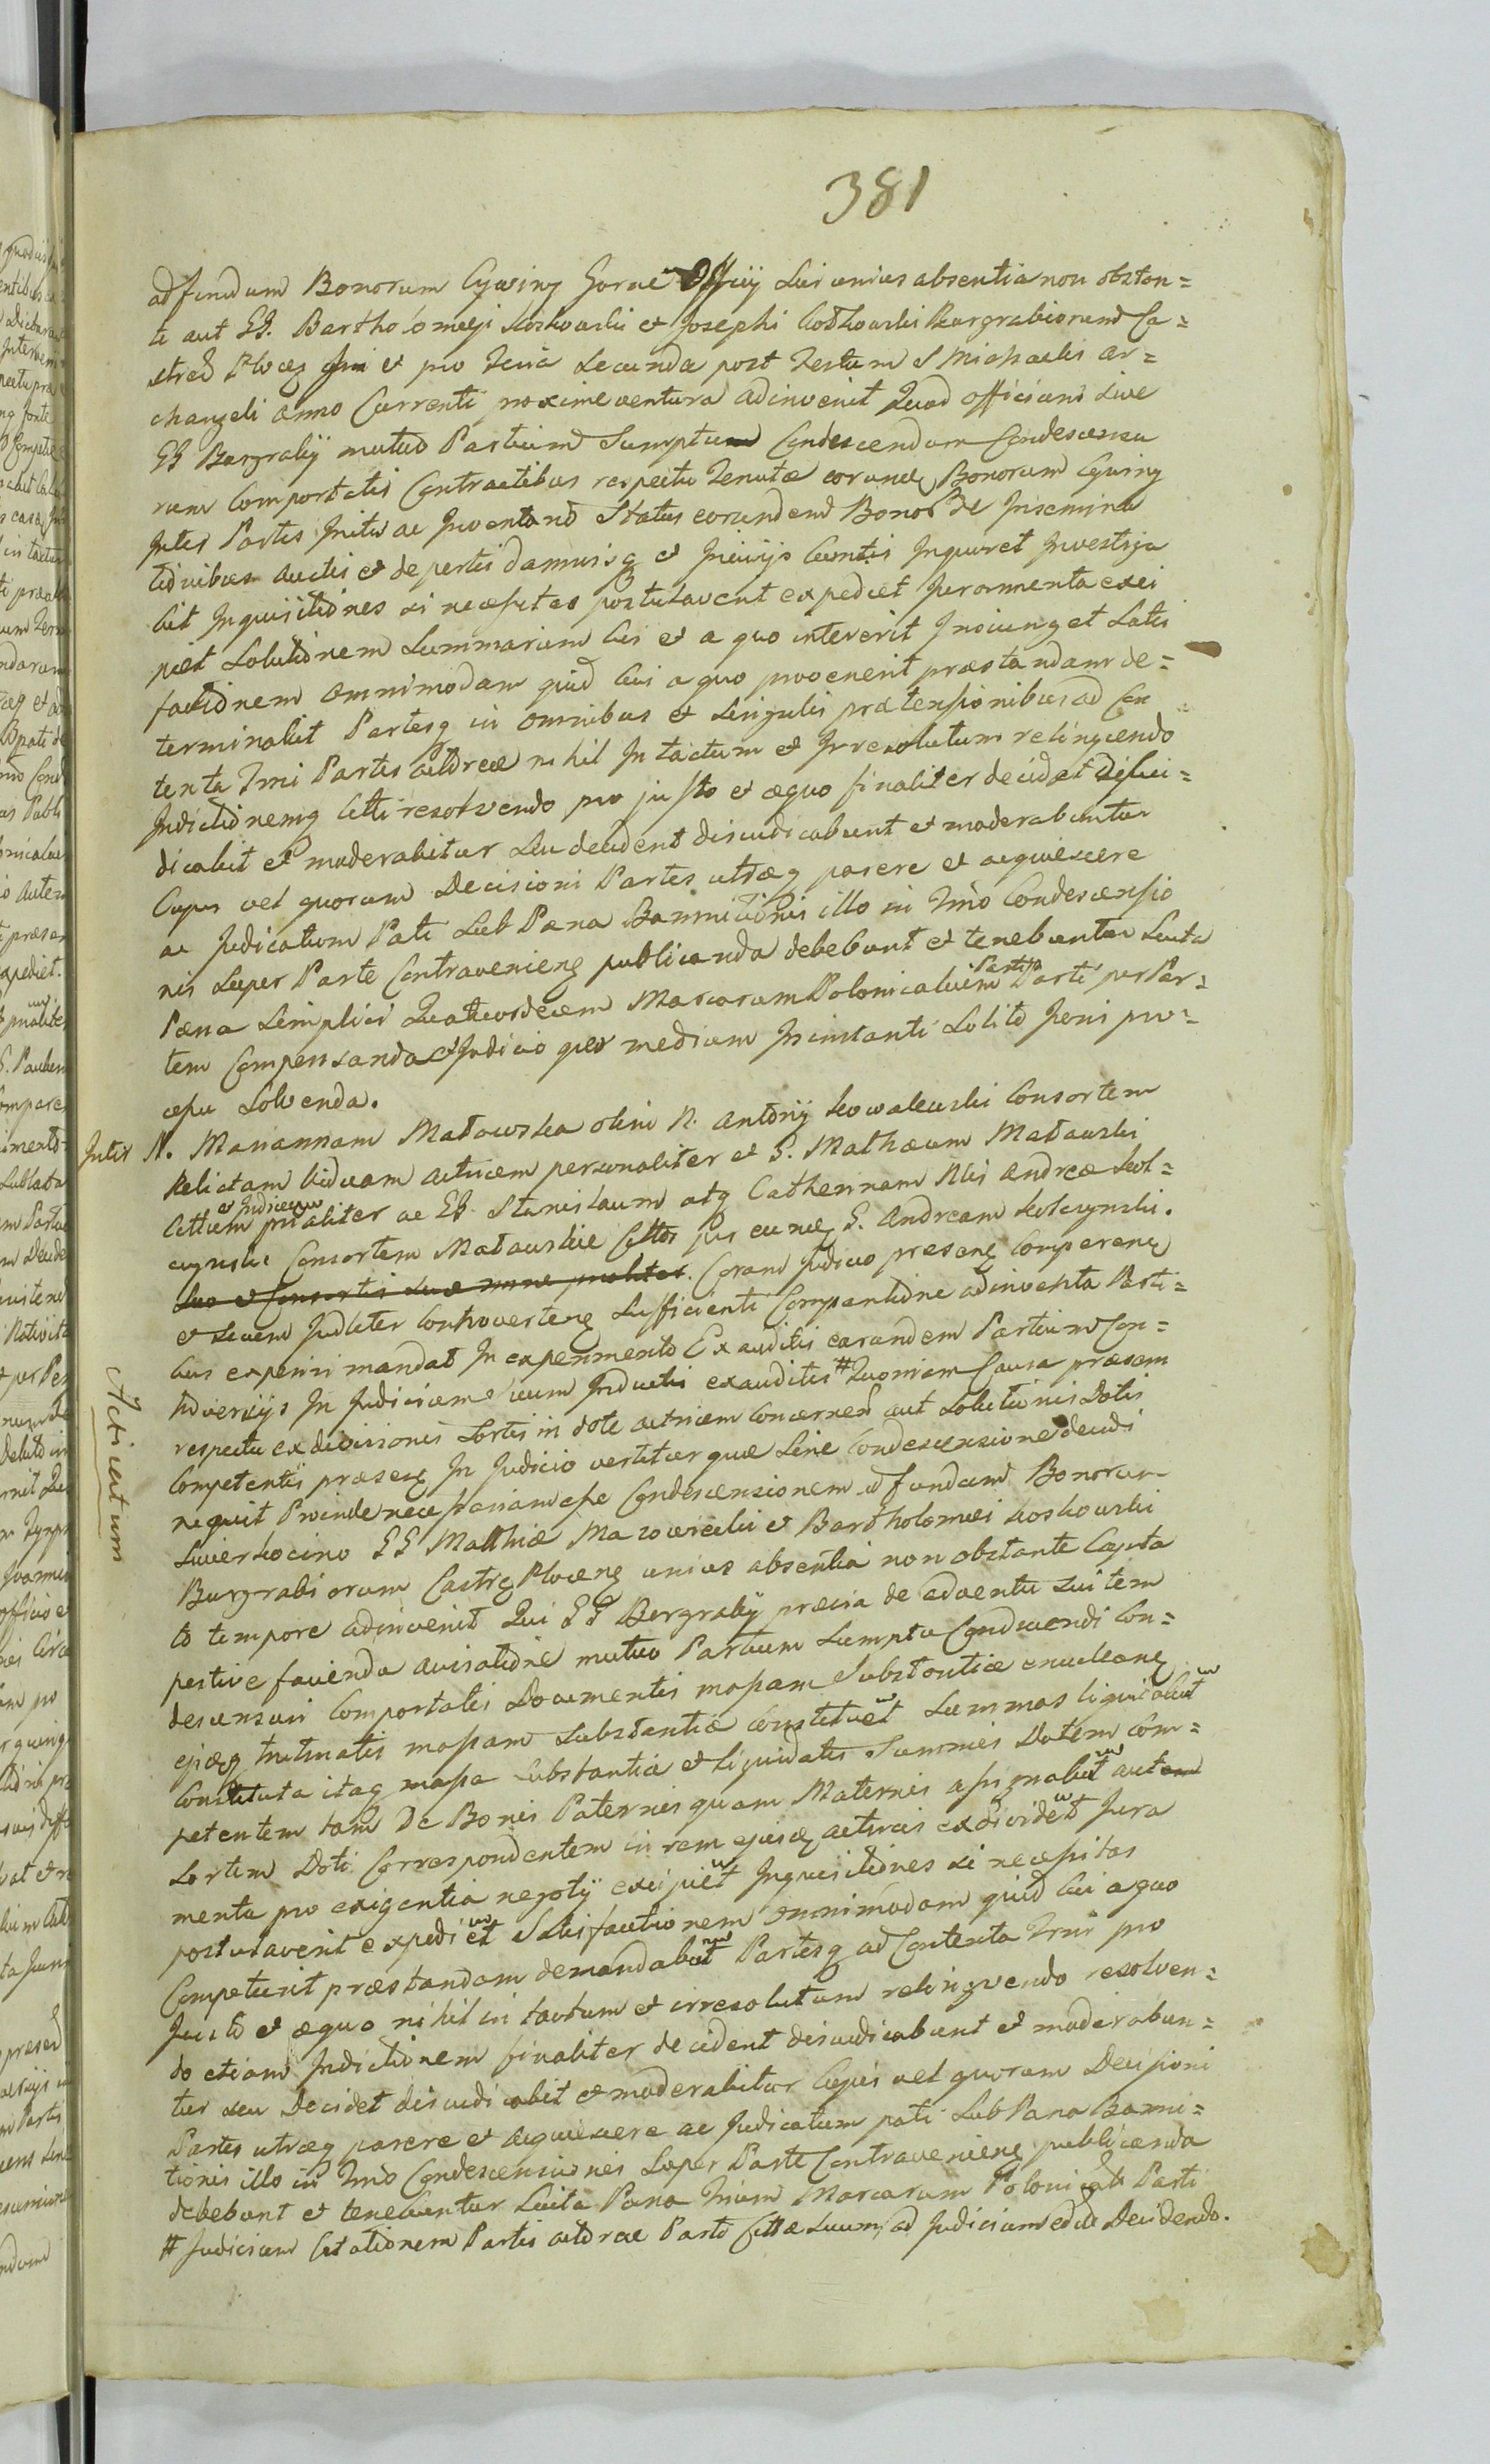 381
ad fundum Bonorum Cywiny Gorne Officij Sui unius absentia non obstan=
te aut GG. Bartholomeji Koskowski et Josephi Burgrabiorum Ca=
stred Ploceg et pro feria Secunda post Festum S Michaelis ar=
changeli anno Currenti proxime ventura adinvenit Quod officium sive
GG Burgrabij mutuo Partium Sumptu Condescendum Condescensu
rum Comportatis Contractibus respectu Tenutæ eorundq Bonorum Cywiny
Inter Partes Initis ac Inventand Status eorundem Bonor de Insemina
tionibus auctis et depertis damnisq et Injurijs Inquiret Investiga
bit Inquisitiones si necessitas postulaverit expediet Juramenta exci
piet Solutionem Summarum cui et a quo intererit Injunget Satis
factionem omnimodam quid cui a quo provenerit præstandam de=
terminabit Partesq in omnibus et singulis prætensionibus ad Con
tenta Tmi Partis actoreæ nihil Intactum et Irresolutum relinquendo
Indictionemq resolvendo pro justo et æquo finaliter decidet dijudi=
dicabit et moderabitur seu decident dijudicabunt et moderabuntur
Cujus vel quorum Decisioni Partes utræq parere et acquiescere
ac Judicatum Pati Sub Pœna Bannitionis illo in Tmo Condescensio
nis super Parte Contravenienq publicanda debebunt et tenebuntur Sucta
Pœna Simplici Quatuordecem Marcarum Polonicalium Parti per Par=
Partis
tem Compensanda et Judicio per medium Instanti Solito Jeni pro=
cessu Solvenda.
Inter N. Mariannam Matowska olim N. Antonij Kowalewski Consortem
Relictam Viduam actricem personaliter et G. Mathæum Matowski
et Judicem
Cittum pnaliter ac GG Stanislaum atq Catherinam Nlis Andreæ Kol=
czynski Consortem Matowskie Cittos per eundq G. Andream Kolczynski.
Suo et Consortis suæ nomine pnaliter. Coram Judicio presenq Comparenq
et Secum Judleter Controvertenq Sufficienti Comparitione adinventa Parti=
bus experiri mandat In experimento Exauditis earundem Partium Con=
troversijs In Judicium suum Inductis exauditis # Quoniam Causa præsens
respectu exdivisionis Sortis in dote actricem concernen aut Solutionis Dotis
Competentis præsenq In Judicio vertitur quæ Sine Condescensione decidi
nequit Proinde necessariam esse Condescensionem ad fundum Bonorum
Swerkocino GG Mathiæ Mazowiecki et Bartholomei Koskowski
Burgrabiorum Castrq Plocenq unius absentia non obstante Capta
to tempore adinvenit Qui GG Burgrabij prævia de adventu sui tem
pestive facienda avisatione mutuo Partium Sumptu Conducendi Con=
descensuri Comportatis Documentis massam Substantiæ enucleanq
ejusq trutinatis massam Substantiæ constituet Summas liquidabit
Constituta itaq massa Substantiæ et liquidatis Summis Dotem Com=
petentem tam De Bonis Paternis quam Maternis assignabit aut
Sortem Doti Correspondentem in rem ejusq actricis exdividet Jura
menta pro exigentia negotij excipiet Inquisitiones si necessitas
postulaverit expediet Satisfactionem omnimodam quid cui a quo
Competierit præstandam demandabit Partesq ad Contenta Tmi pro
Justo et æquo nihil intactum et irresolutum relinquendo resolven=
do etiam Indictionem finaliter decident dijudicabunt et moderabun=
tur seu Decidet dijudicabit et moderabitur Cujus vel quorum Decisioni
Partes utræq parere et acquiescere ac Judicatum pati Sub Pœna Banni=
tionis illo in Tmo Condescensionis Super Parte Contravenienq publicanda
debebunt et tenebuntur Sucta Pœna Trium Marcarum Polonicali Parti
# Judicium Citationem Partis actoreæ Parti Cittæ suum ad Judicium edito Decidendo.
Acticatum